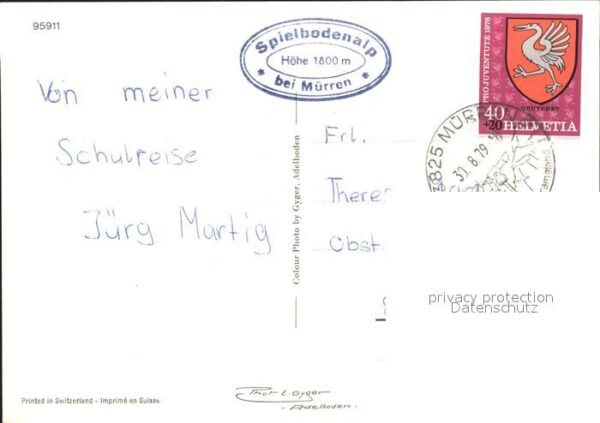 95911
Spielbodenalp
Höhe 1800 m
* bei Mürren *
PRO JUVENTUTE 1978
40
+20 HELVETIA
3825 MÜRREN
30.8.79
Von meiner
Schulreise
Jürg Martig
Frl.
Obst
Colour Photo by Gyger, Adelboden
privacy protection
Datenschutz
Printed in Switzerland - Imprimé en Suisse
Phot E. Gyger
- Adelboden -